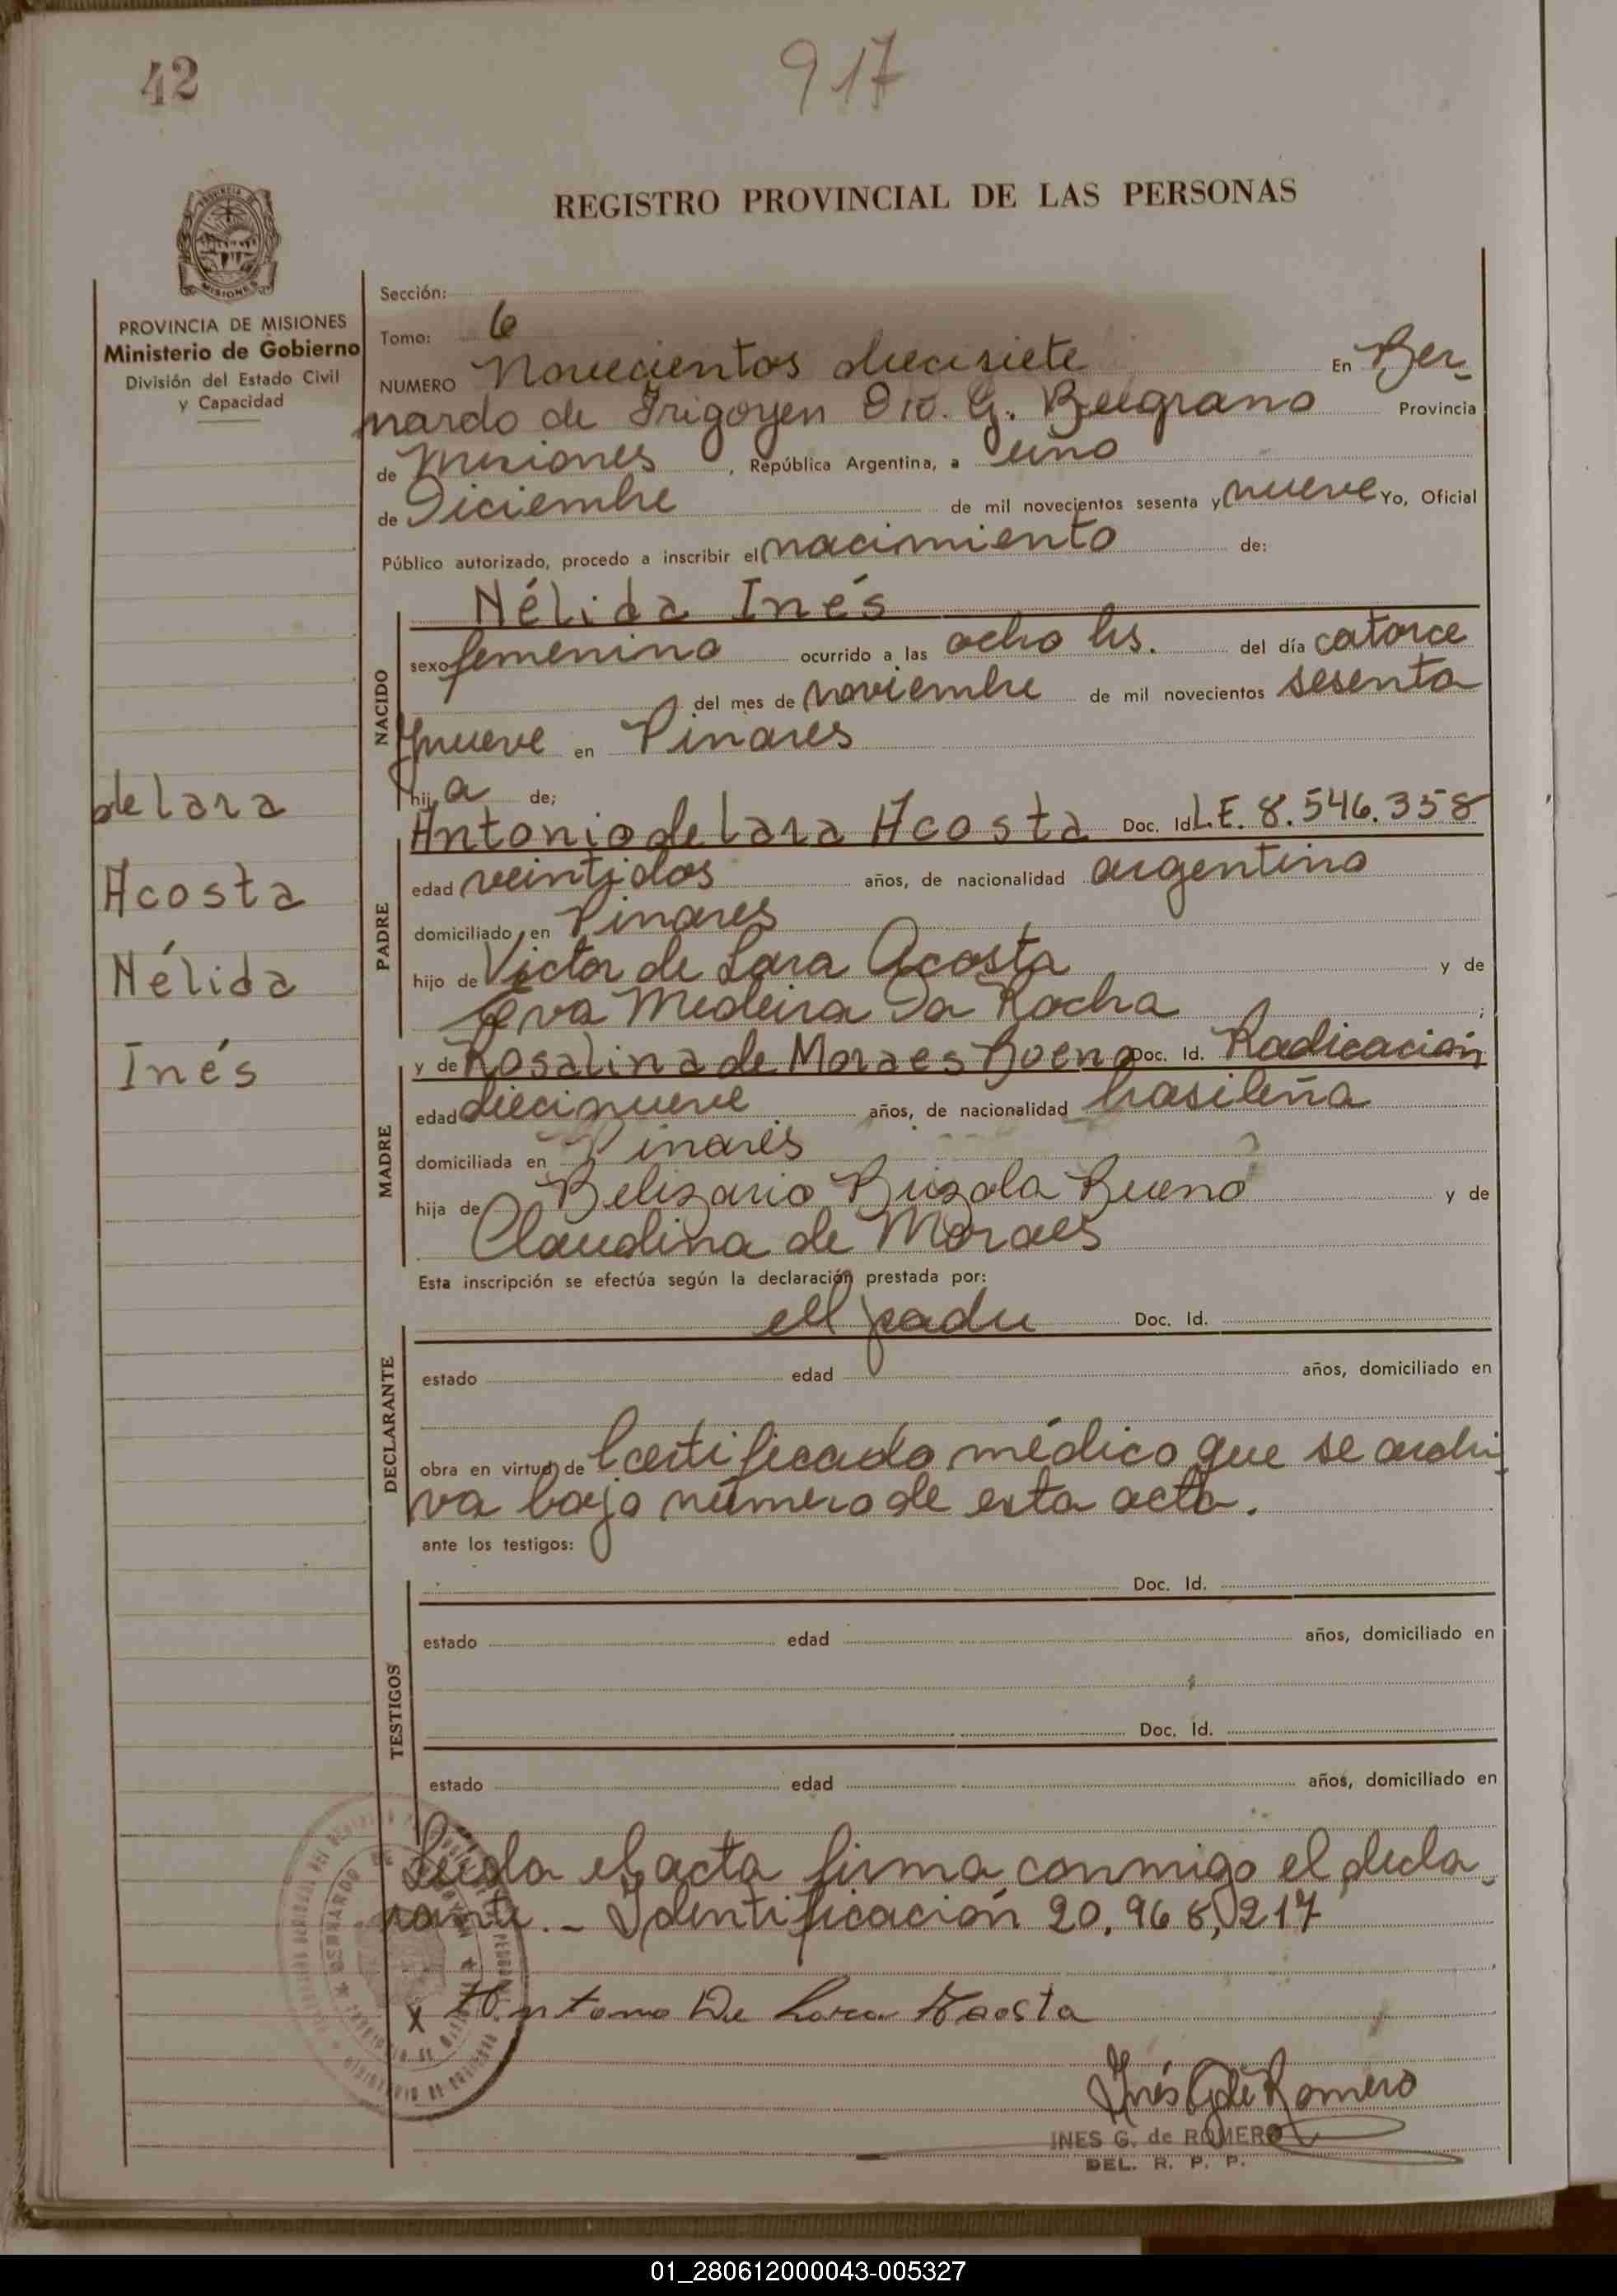 42
917
REGISTRO PROVINCIAL DE LAS PERSONAS
MISIONES
PROVINCIA DE MISIONES
Ministerio de Gobierno
División del Estado Civil
y Capacidad
Sección:
Tomo: 6
NUMERO Novecientos diecisiete En Ber-
nardo de Irigoyen Dto. G. Belgrano Provincia
de Misiones, República Argentina, a uno
de Diciembre de mil novecientos sesenta y nueve Yo, Oficial
Público autorizado, procedo a inscribir el nacimiento de:
Nélida Inés
NACIDO
sexo femenino ocurrido a las ocho hs. del día catorce
del mes de noviembre de mil novecientos sesenta
y nueve en Pinares
hija de;
de lara
Acosta
Nélida
Inés
PADRE
Antonio de lara Acosta Doc. Id. L.E. 8.546.358
edad veintidos años, de nacionalidad argentino
domiciliado en Pinares
hijo de Victor de Lara Acosta y de
Eva Medeira Da Rocha ;
MADRE
y de Rosalina de Moraes Bueno Doc. Id. Radicación
edad diecinueve años, de nacionalidad brasileña
domiciliada en Pinares
hija de Belizario Brizola Bueno y de
Claudina de Moraes
Esta inscripción se efectúa según la declaración prestada por:
DECLARANTE
el padre Doc. Id.
estado edad años, domiciliado en
obra en virtud de Certificado médico que se archi-
va bajo número de esta acta.
ante los testigos:
TESTIGOS
Doc. Id.
estado edad años, domiciliado en
Doc. Id.
estado edad años, domiciliado en
Leida el acta firma conmigo el decla-
rante. - Identificación 20.965,217
x Antonio De Lara Acosta
Inés G de Romero
INES G. de ROMERO
DEL. R. P. P.
01_280612000043-005327